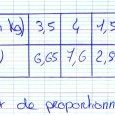 kg) 3,5 4 1,5
) 6,65 7,6 2,8
de proportionn